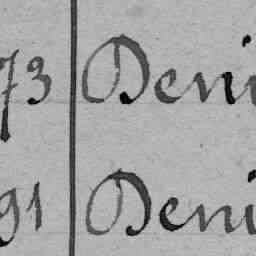 73 Deni
91 Deni